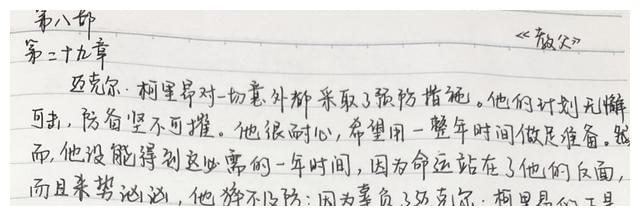 第八部
《教父》
第二十九章
迈克尔·柯里昂对一切意外都采取了预防措施。他的计划无懈
可击，防备坚不可摧。他很耐心，希望用一整年时间做足准备。然
而，他没能得到这必需的一年时间，因为命运站在了他的反面，
而且来势汹汹，他猝不及防：因为辜负了迈克尔·柯里昂的正是